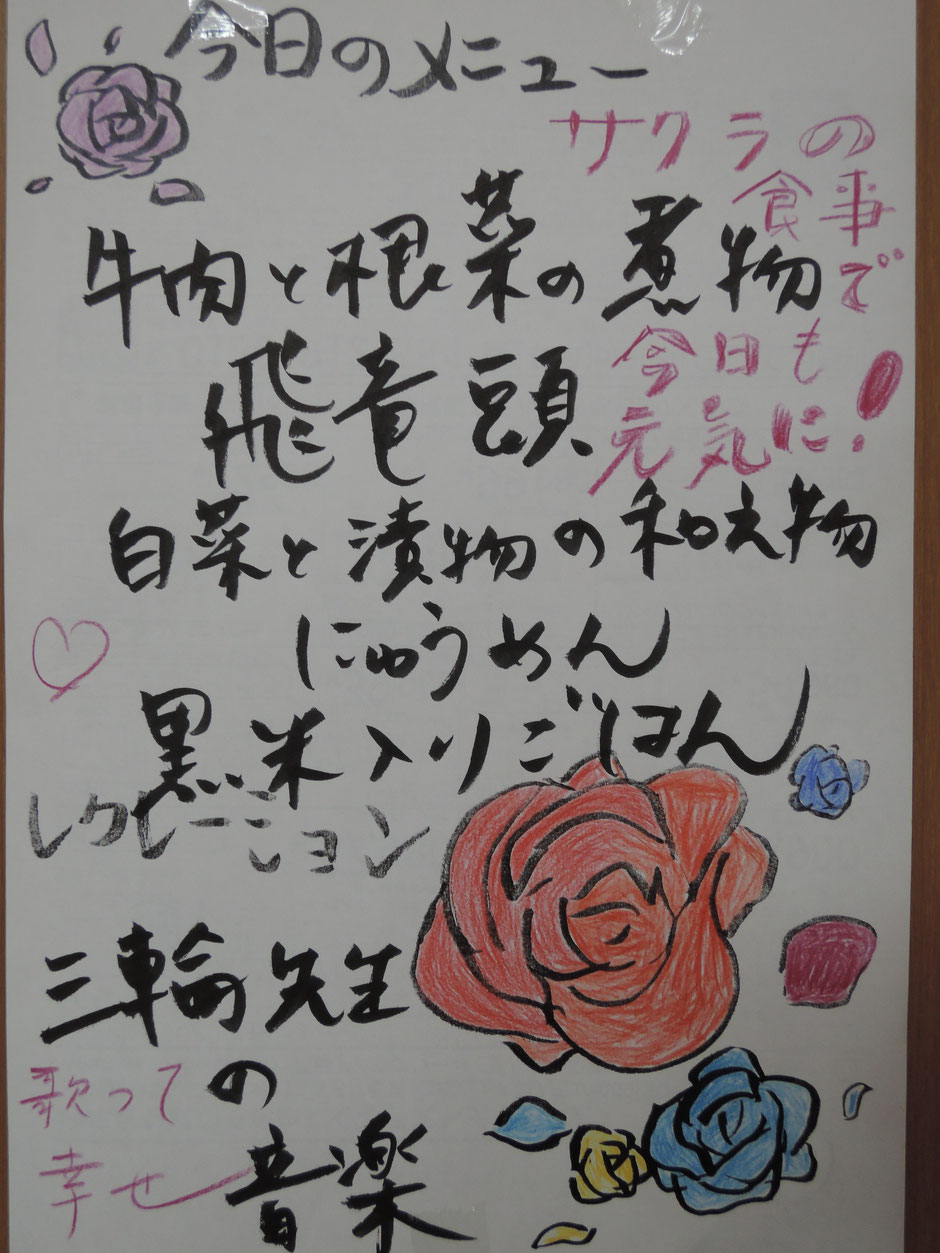 今日のメニュー
サクラの
食事で
今日も
元気に!
牛肉と根菜の煮物
飛竜頭
白菜と漬物の和え物
にゅうめん
黒米入りごはん
レクレーション
三輪先生
の
音楽
歌って
幸せ